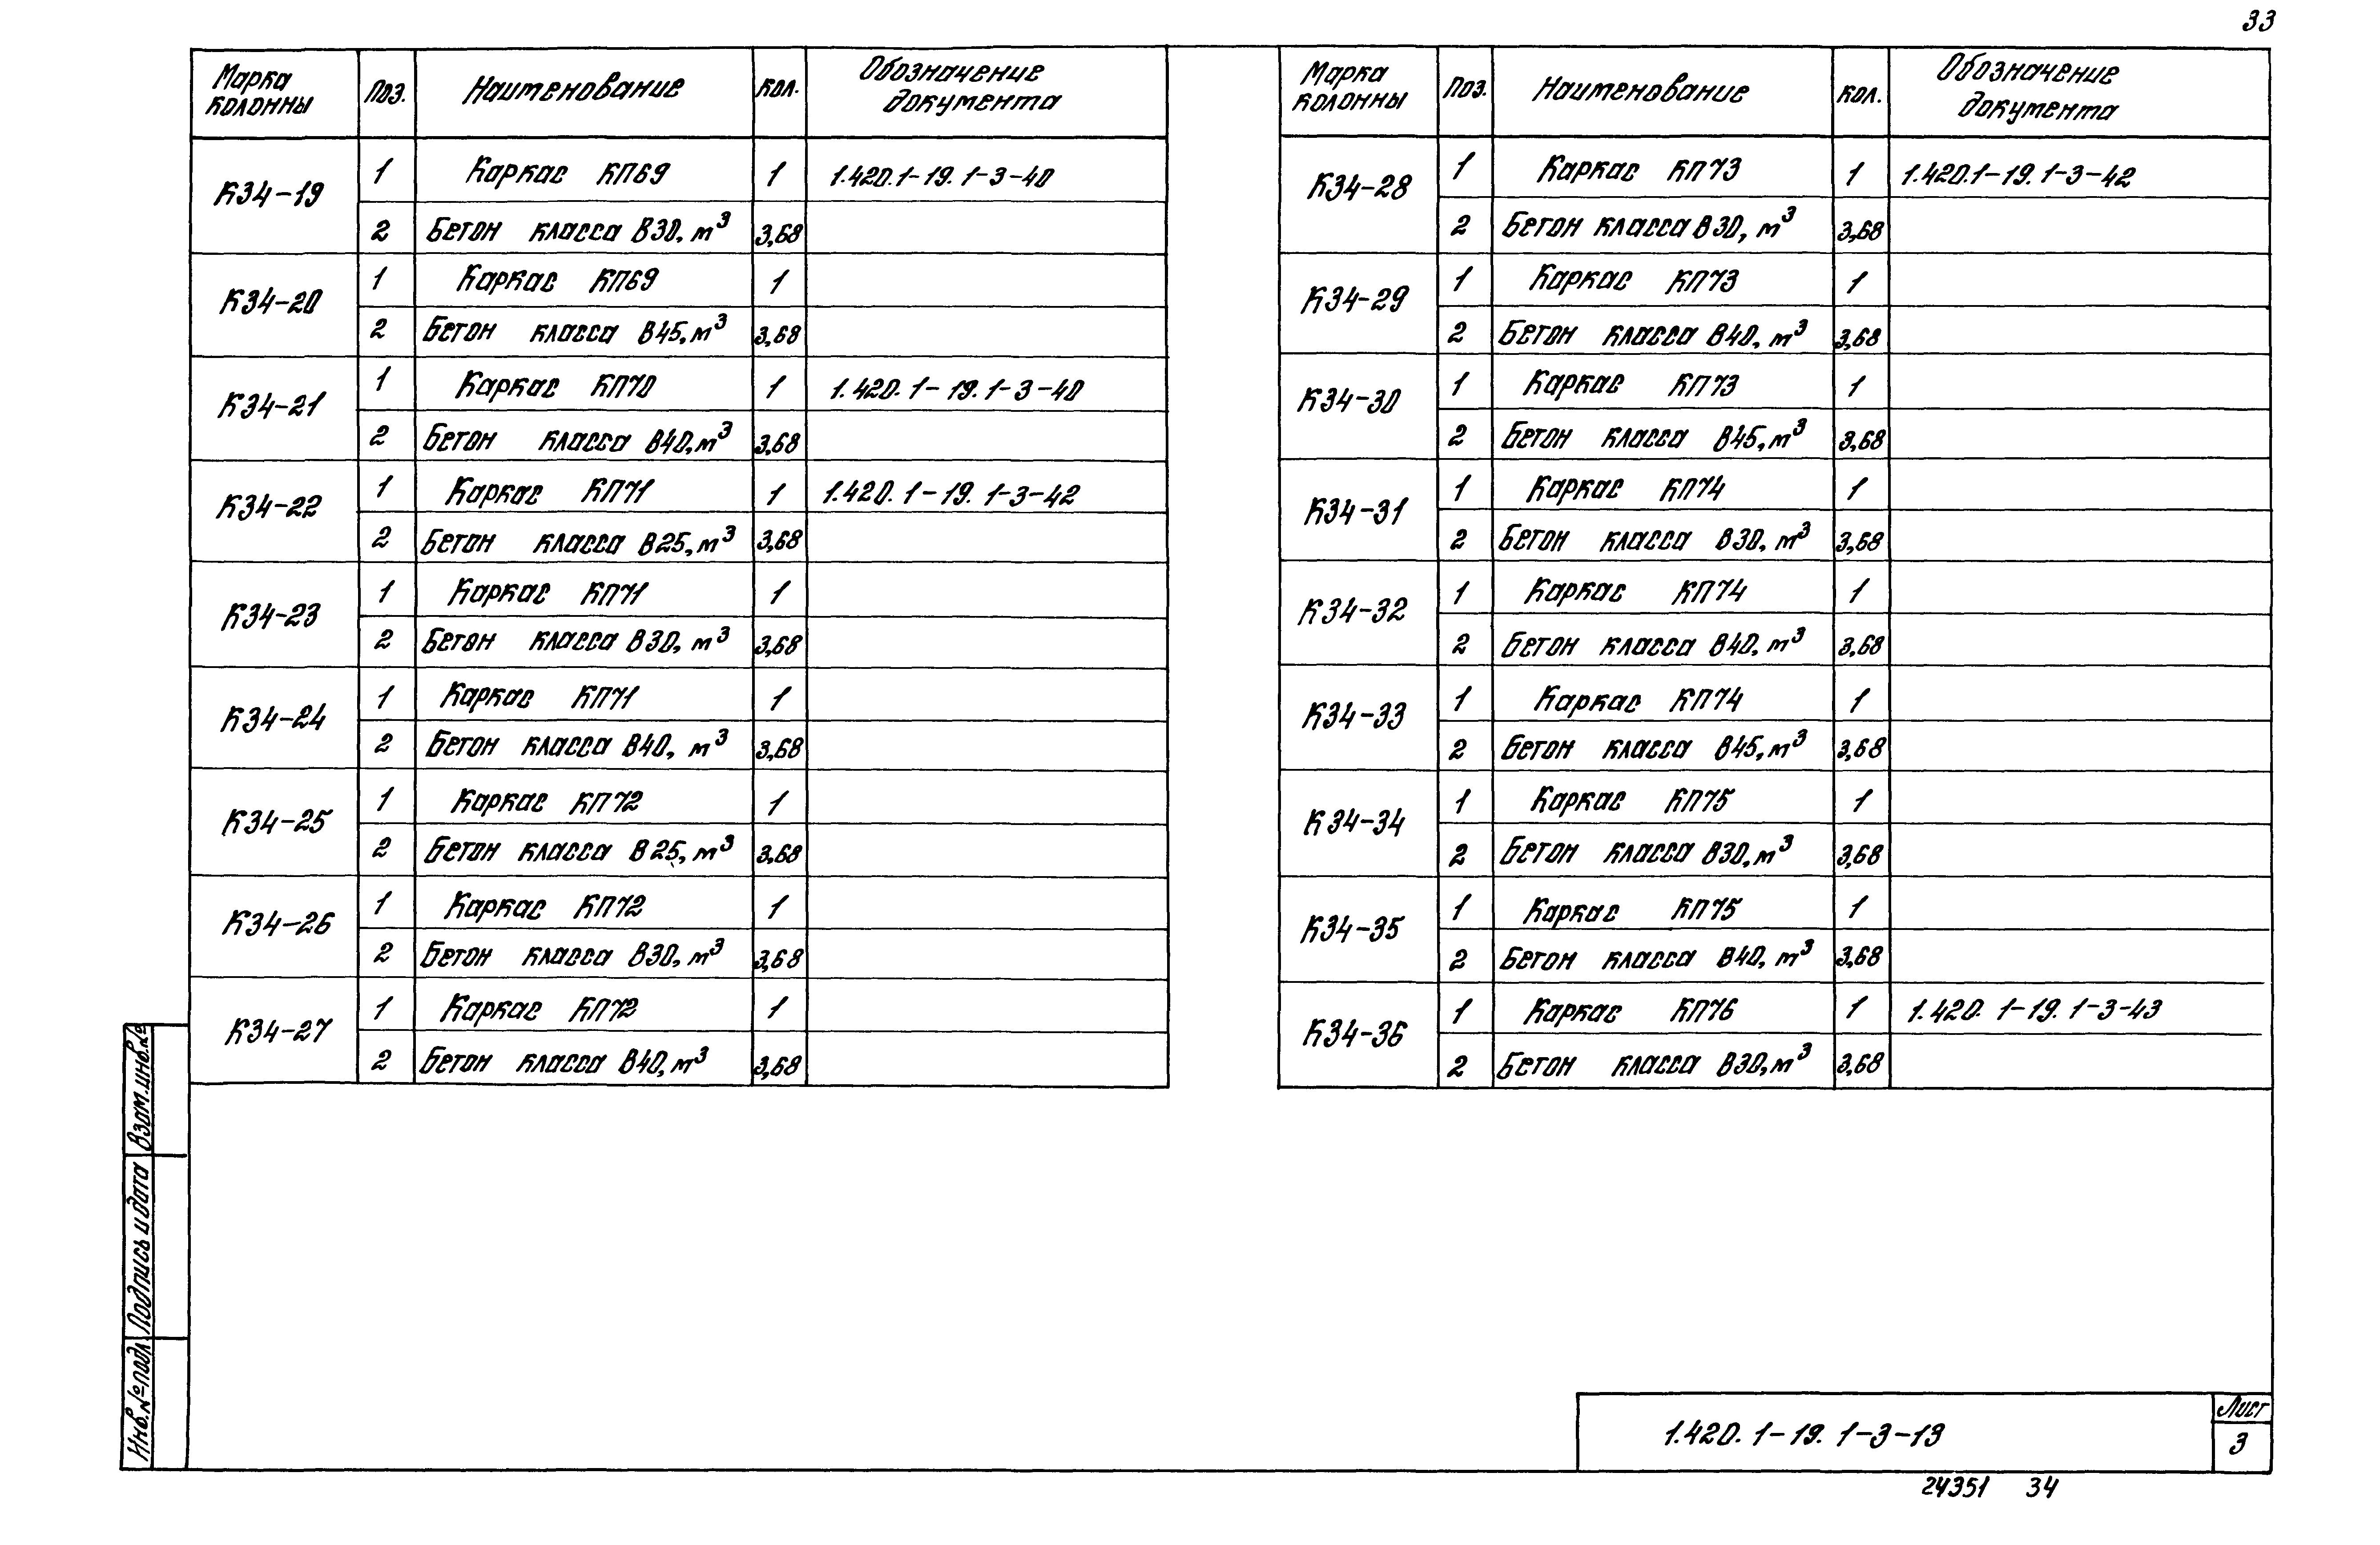 33
Марка колонны Поз. Наименование Кол. Обозначение документа
К34-19 1 Каркас КП69 1 1.420.1-19.1-3-40
2 Бетон класса В30, м³ 3,68
К34-20 1 Каркас КП69 1
2 Бетон класса В45, м³ 3,68
К34-21 1 Каркас КП70 1 1.420.1-19.1-3-40
2 Бетон класса В40, м³ 3,68
К34-22 1 Каркас КП71 1 1.420.1-19.1-3-42
2 Бетон класса В25, м³ 3,68
К34-23 1 Каркас КП71 1
2 Бетон класса В30, м³ 3,68
К34-24 1 Каркас КП71 1
2 Бетон класса В40, м³ 3,68
К34-25 1 Каркас КП72 1
2 Бетон класса В25, м³ 3,68
К34-26 1 Каркас КП72 1
2 Бетон класса В30, м³ 3,68
К34-27 1 Каркас КП72 1
2 Бетон класса В40, м³ 3,68
Марка колонны Поз. Наименование Кол. Обозначение документа
К34-28 1 Каркас КП73 1 1.420.1-19.1-3-42
2 Бетон класса В30, м³ 3,68
К34-29 1 Каркас КП73 1
2 Бетон класса В40, м³ 3,68
К34-30 1 Каркас КП73 1
2 Бетон класса В45, м³ 3,68
К34-31 1 Каркас КП74 1
2 Бетон класса В30, м³ 3,68
К34-32 1 Каркас КП74 1
2 Бетон класса В40, м³ 3,68
К34-33 1 Каркас КП74 1
2 Бетон класса В45, м³ 3,68
К34-34 1 Каркас КП75 1
2 Бетон класса В30, м³ 3,68
К34-35 1 Каркас КП75 1
2 Бетон класса В40, м³ 3,68
К34-36 1 Каркас КП76 1 1.420.1-19.1-3-43
2 Бетон класса В30, м³ 3,68
Взам.инв.№
Подпись и дата
Инв.№подл.
1.420.1-19.1-3-13
Лист
3
24351 34